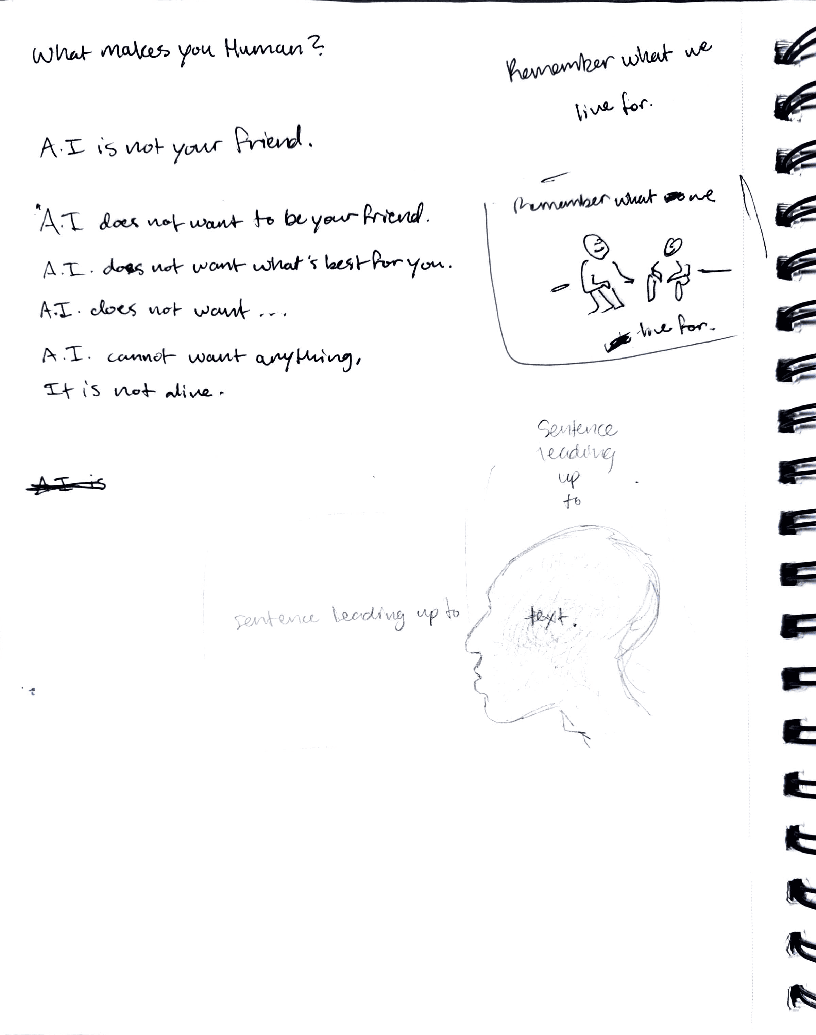 What makes you Human?
A.I is not your friend.
"A.I does not want to be your friend.
A.I. does not want what's best for you.
A.I. does not want ...
A.I. cannot want anything,
It is not alive.
A.I is
Remember what we
live for.
Remember what we
live for.
Sentence
leading
up
to
sentence leading up to
text.